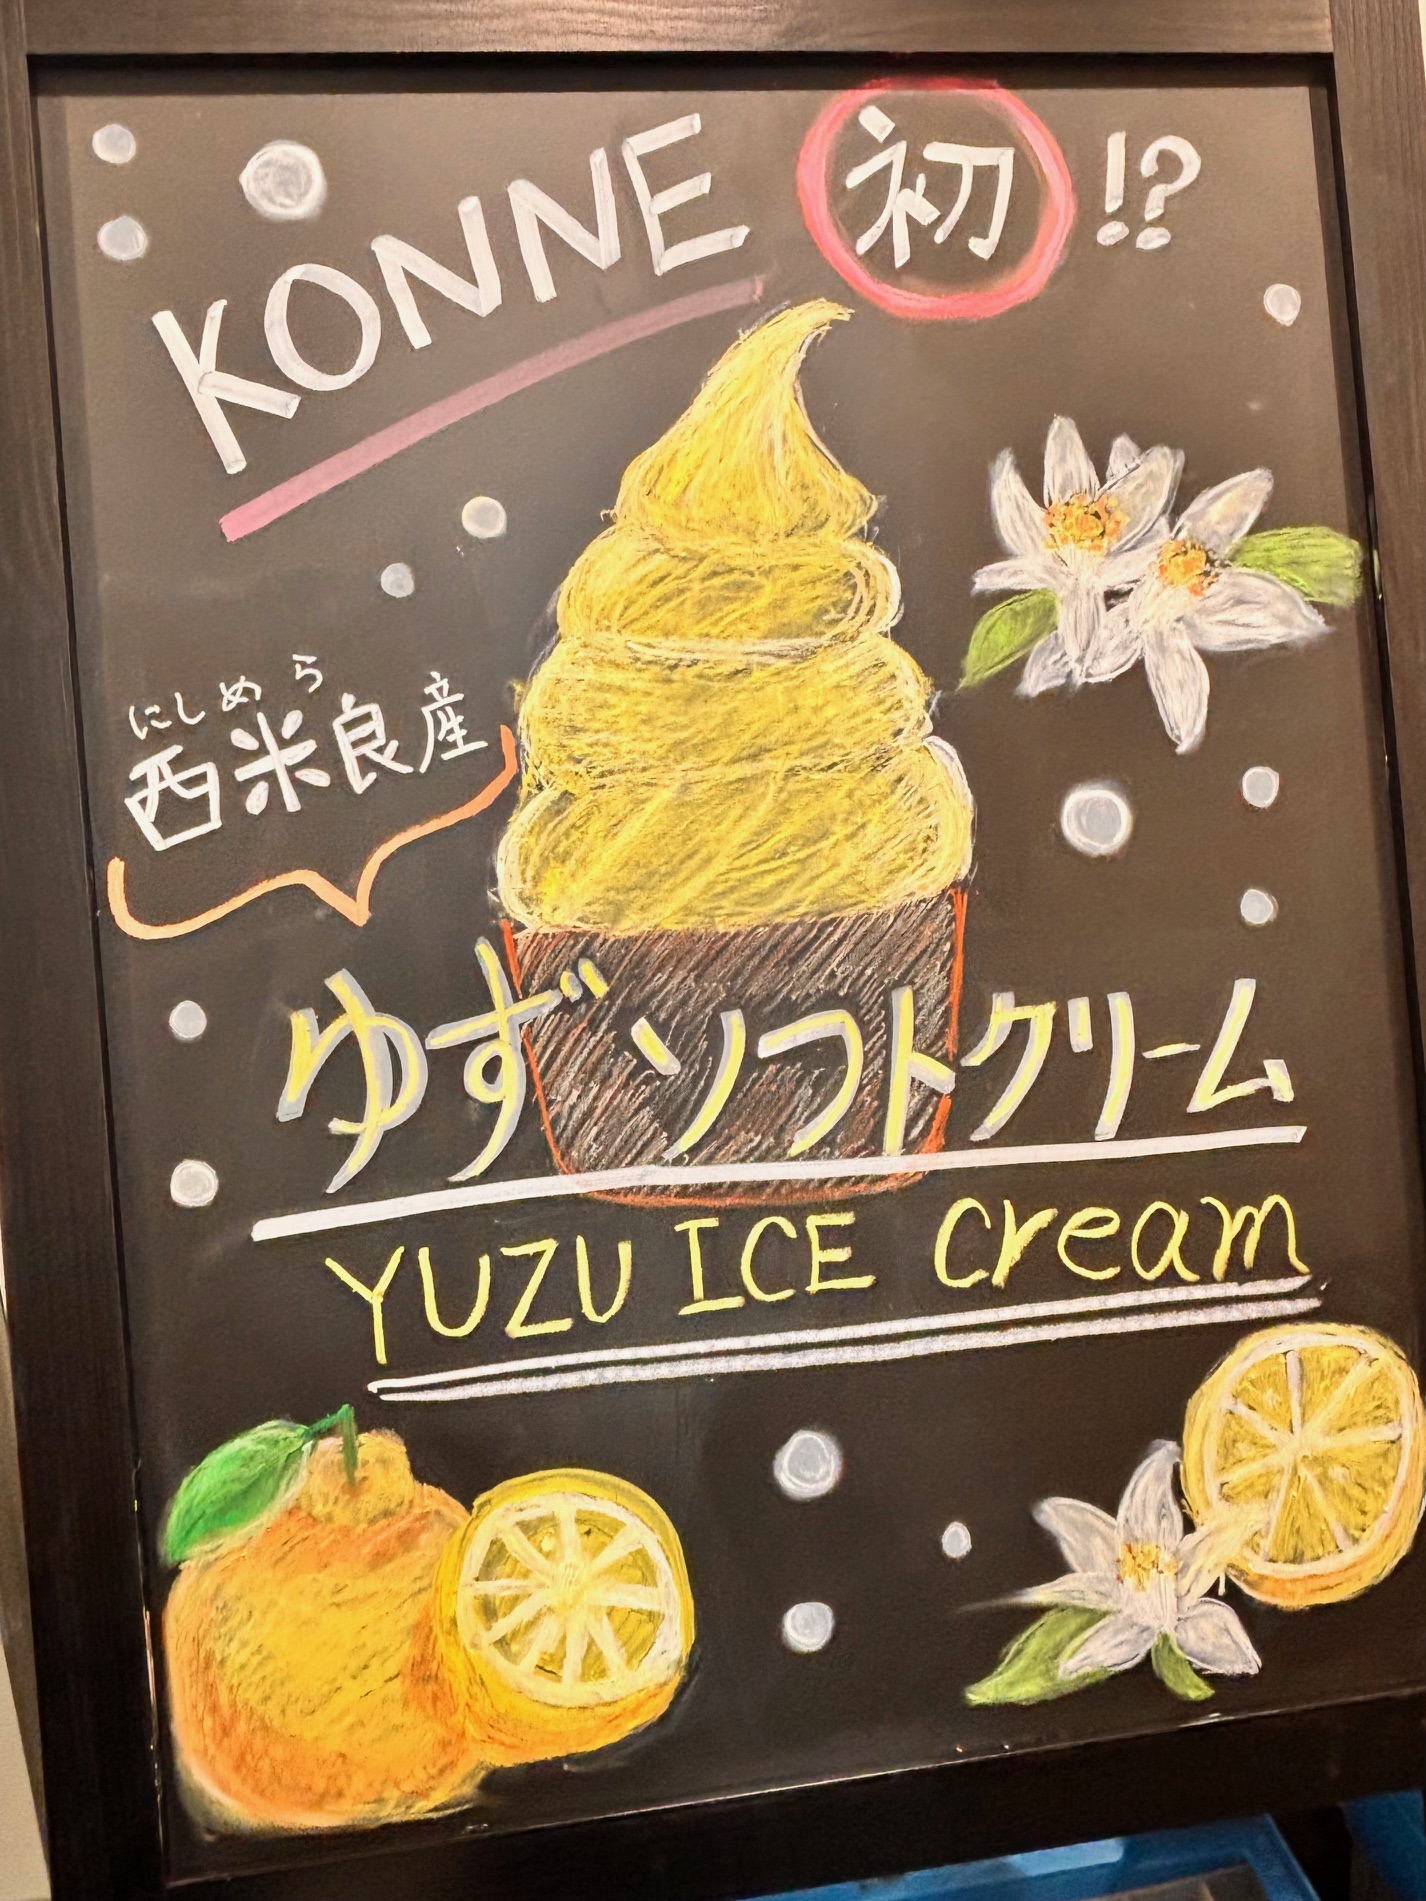 KONNE 初 !?
にしめら
西米良産
ゆずソフトクリーム
YUZU ICE cream